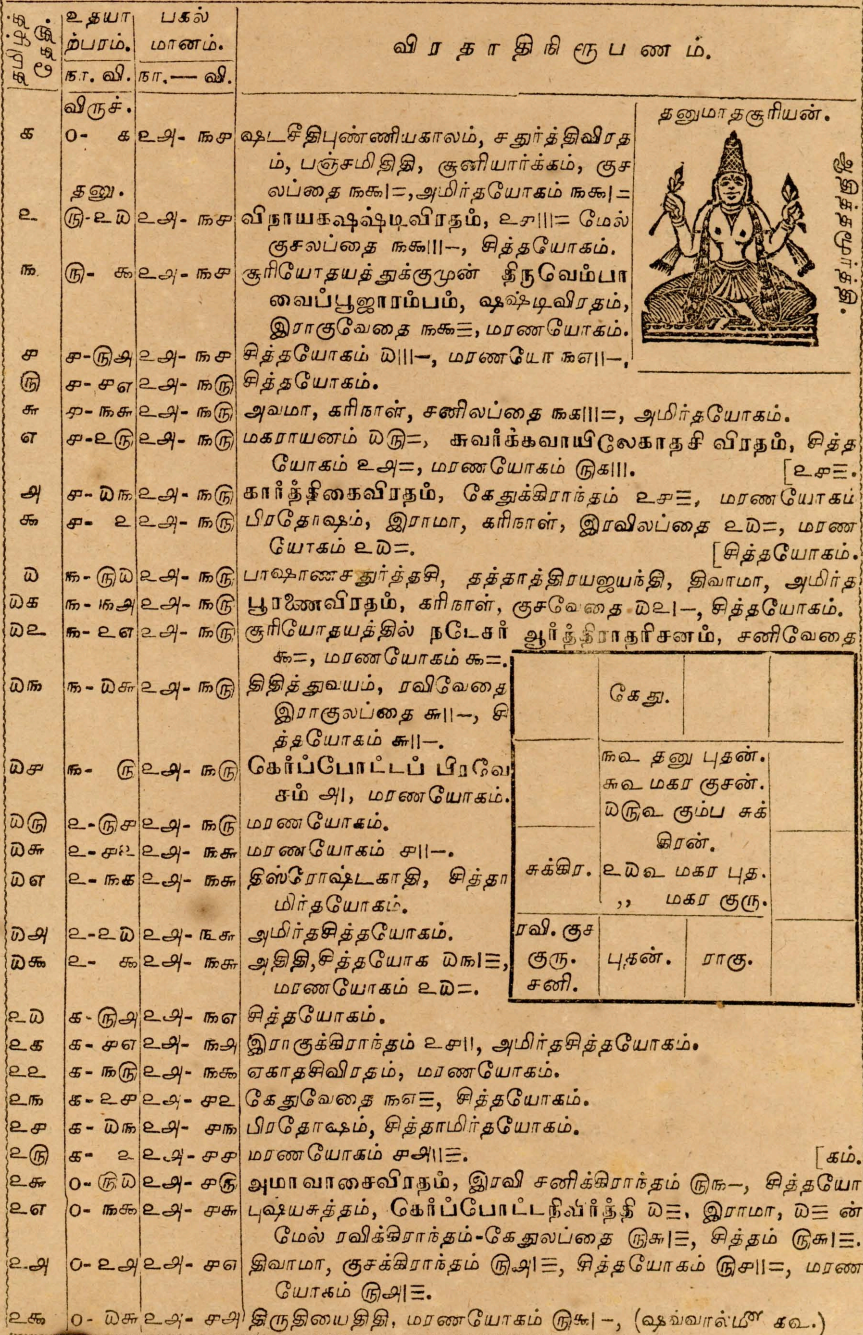 தமிழ்த்தேதி. உதயா பகல்
ற்பரம். மானம். விரதாதிநிரூபணம்.
நா. வி. நா.— வி.
விருச். தனுமாதசூரியன்.
க 0- க ௨௮- ௩௪ ஷடசீதிபுண்ணியகாலம், சதுர்த்திவிரத
ம், பஞ்சமிதிதி, சூனியார்க்கம், குச
தனு. லப்தை ௩௬|=,அமிர்தயோகம் ௩௬|=
௨ ௫-௨௰ ௨௮- ௩௪ விநாயகஷஷ்டிவிரதம், ௨௪|||= மேல்
குசலப்தை ௩௬|||–, சித்தயோகம்.
௩ ௫- ௯ ௨௮- ௩௪ சூரியோதயத்துக்குமுன் திருவெம்பா
வைப்பூஜாரம்பம், ஷஷ்டிவிரதம்,
இராகுவேதை ௩௯☰, மரணயோகம்.
௪ ௪-௫௮ ௨௮- ௩௪ சித்தயோகம் ௰|||–, மரணயோ ௩௭||–,
௫ ௪-௪௭ ௨௮- ௩௫ சித்தயோகம்.
௬ ௪-௩௬ ௨௮- ௩௫ அவமா, கரிநாள், சனிலப்தை ௩௧|||=, அமிர்தயோகம்.
௭ ௪-௨௫ ௨௮- ௩௫ மகராயனம் ௰௫=, சுவர்க்கவாயிலேகாதசி விரதம், சித்த
யோகம் ௨௮=, மரணயோகம் ௫௧|||. [௨௪☰.
௮ ௪-௰௩ ௨௮- ௩௫ கார்த்திகைவிரதம், கேதுக்கிராந்தம் ௨௪☰, மரணயோகம்
௯ ௪- ௨ ௨௮- ௩௫ பிரதோஷம், இராமா, கரிநாள், இரவிலப்தை ௨௰=, மரண
யோகம் ௨௰=. [சித்தயோகம்.
௰ ௩-௫௰ ௨௮- ௩௫ பாஷாணசதுர்த்தசி, தத்தாத்திரயஜயந்தி, திவாமா, அமிர்த
௰௧ ௩-௩௮ ௨௮- ௩௫ பூரணைவிரதம், கரிநாள், குசவேதை ௰௨|–, சித்தயோகம்.
௰௨ ௩-௨௭ ௨௮- ௩௫ சூரியோதயத்தில் நடேசர் ஆர்த்திராதரிசனம், சனிவேதை
௯=, மரணயோகம் ௯=.
௰௩ ௩-௰௬ ௨௮- ௩௫ திதித்துவயம், ரவிவேதை
இராகுலப்தை ௬||–, சி
த்தயோகம் ௬||–.
௰௪ ௩- ௫ ௨௮- ௩௫ கெர்ப்போட்டப் பிரவே
சம் ௮|, மரணயோகம்.
௰௫ ௨-௫௪ ௨௮- ௩௫ மரணயோகம்.
௰௬ ௨-௪௨ ௨௮- ௩௬ மரணயோகம் ௪||–.
௰௭ ௨-௩௧ ௨௮- ௩௬ திஸ்ரோஷ்டகாதி, சித்தா
மிர்தயோகம்.
௰௮ ௨-௨௰ ௨௮- ௩௬ அமிர்தசித்தயோகம்.
௰௯ ௨- ௯ ௨௮- ௩௬ அதிதி,சித்தயோக ௰௩|☰,
மரணயோகம் ௨௰=.
கேது.
௩௨ தனு புதன்.
௬௨ மகர குசன்.
௰௫௨ கும்ப சுக்
கிரன்.
சுக்கிர. ௨௰௨ மகர புத.
,, மகர குரு.
ரவி. குச
குரு. புதன். ராகு.
சனி.
௨௰ ௧-௫௮ ௨௮- ௩௭ சித்தயோகம்.
௨௧ ௧-௪௭ ௨௮- ௩௮ இராகுக்கிராந்தம் ௨௪||, அமிர்தசித்தயோகம்.
௨௨ ௧-௩௫ ௨௮- ௩௯ ஏகாதசிவிரதம், மரணயோகம்.
௨௩ ௧-௨௪ ௨௮- ௪௨ கேதுவேதை ௩௭☰, சித்தயோகம்.
௨௪ ௧-௰௩ ௨௮- ௪௩ பிரதோஷம், சித்தாமிர்தயோகம்.
௨௫ ௧- ௨ ௨௮- ௪௪ மரணயோகம் ௪௮||☰. [கம்.
௨௬ 0-௫௰ ௨௮- ௪௫ அமாவாசைவிரதம், இரவி சனிக்கிராந்தம் ௫௩–, சித்தயோ
௨௭ 0-௩௯ ௨௮- ௪௬ புஷ்யசுத்தம், கெர்ப்போட்டநிவிர்த்தி ௰☰, இராமா, ௰☰ ன்
மேல் ரவிக்கிராந்தம்-கேதுலப்தை ௫௬|☰, சித்தம் ௫௬|☰.
௨௮ 0-௨௮ ௨௮- ௪௭ திவாமா, குசக்கிராந்தம் ௫௮|☰, சித்தயோகம் ௫௪||=, மரண
யோகம் ௫௮|☰.
௨௯ 0-௰௬ ௨௮- ௪௮ திருதியைதிதி, மரணயோகம் ௫௯|–, (ஷவ்வால்மீ ௧௨.)